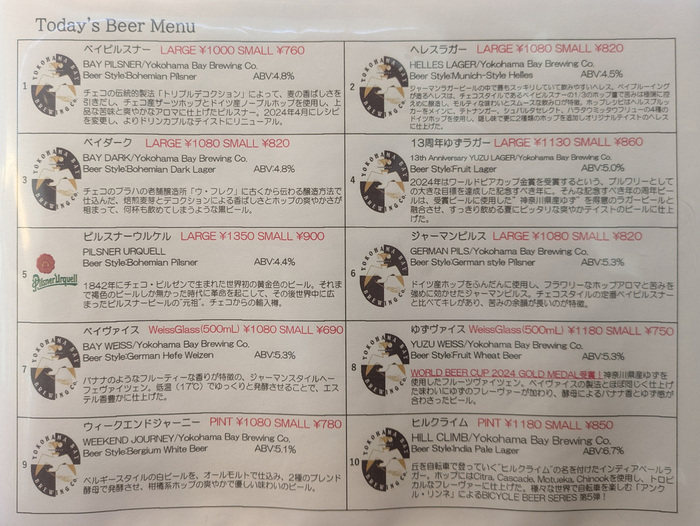 Today's Beer Menu
1
ベイピルスナー LARGE ¥1000 SMALL ¥760
BAY PILSNER/Yokohama Bay Brewing Co.
Beer Style:Bohemian Pilsner ABV:4.8%
チェコの伝統的製法「トリプルデコクション」によって、麦の香ばしさを
引きだし、チェコ産ザーツホップとドイツ産ノーブルホップを使用し、上
品な苦味と爽やかなアロマに仕上げたピルスナー。2024年4月にレシピ
を変更し、よりドリンカブルなテイストにリニューアル。
YOKOHAMA BAY
BREWING Co.
2
ヘレスラガー LARGE ¥1080 SMALL ¥820
HELLES LAGER/Yokohama Bay Brewing Co.
Beer Style:Munich-Style Helles ABV:4.5%
ジャーマンラガービールの中で最もスッキリしていて飲みやすいヘレス。ベイブルーイング
が造るヘレスは、チェコスタイルであるベイピルスナーの1/3のホップ量で苦みは極端に控
えめに醸造し、モルティな味わいとスムースな飲み口が特徴。ホップレシピはヘレスブルッ
カーズをメインに、テトナンガー、シュパルタセレクト、ハラタウミッテルフリューの4種の
ドイツホップを使用し、隠し味で更に2種類のホップを追加しオリジナルテイストのヘレス
に仕上げた。
YOKOHAMA BAY
BREWING Co.
3
ベイダーク LARGE ¥1080 SMALL ¥820
BAY DARK/Yokohama Bay Brewing Co.
Beer Style:Bohemian Dark Lager ABV:4.8%
チェコのプラハの老舗醸造所「ウ・フレク」に古くから伝わる醸造方法で
仕込んだ、焙煎麦芽とデコクションによる香ばしさとホップの爽やかさが
相まって、何杯も飲めてしまうような黒ビール。
YOKOHAMA BAY
BREWING Co.
4
13周年ゆずラガー LARGE ¥1130 SMALL ¥860
13th Anniversary YUZU LAGER/Yokohama Bay Brewing Co.
Beer Style:Fruit Lager ABV:5.0%
2024年はワールドビアカップ金賞を受賞するという、ブルワリーとして
の大きな目標を達成した記念すべき年に。そんな記念すべき年の周年ビー
ルは、受賞ビールに使用した"神奈川県産ゆず"を得意のラガービールと
融合させ、すっきり飲める夏にピッタリな爽やかテイストのビールに仕上
げた。
YOKOHAMA BAY
BREWING Co.
5
ピルスナーウルケル LARGE ¥1350 SMALL ¥900
PILSNER URQUELL
Beer Style:Bohemian Pilsner ABV:4.4%
1842年にチェコ・ピルゼンで生まれた世界初の黄金色のビール。それま
で褐色のビールしか無かった時代に革命を起こして、その後世界中に広
まったピルスナービールの"元祖"。チェコからの輸入樽。
Pilsner Urquell
6
ジャーマンピルス LARGE ¥1080 SMALL ¥820
GERMAN PILS/Yokohama Bay Brewing Co.
Beer Style:German style Pilsner ABV:5.3%
ドイツ産ホップをふんだんに使用し、フラワリーなホップアロマと苦みを
強めに効かせたジャーマンピルス。チェコスタイルの定番ベイピルスナー
と比べてキレがあり、苦みの余韻が長いのが特徴。
YOKOHAMA BAY
BREWING Co.
7
ベイヴァイス WeissGlass(500mL) ¥1080 SMALL ¥690
BAY WEISS/Yokohama Bay Brewing Co.
Beer Style:German Hefe Weizen ABV:5.3%
バナナのようなフルーティーな香りが特徴の、ジャーマンスタイルヘー
フェヴァイツェン。低温（17℃）でゆっくりと発酵させることで、エス
テル香豊かに仕上げた。
YOKOHAMA BAY
BREWING Co.
8
ゆずヴァイス WeissGlass(500mL) ¥1180 SMALL ¥750
YUZU WEISS/Yokohama Bay Brewing Co.
Beer Style:Fruit Wheat Beer ABV:5.3%
WORLD BEER CUP 2024 GOLD MEDAL受賞！神奈川県産ゆずを
使用したフルーツヴァイツェン。ベイヴァイスの製法とほぼ同じく仕上げ
た味わいにゆずのフレーヴァーが加わり、酵母によるバナナ香とゆず感が
合わさったビール。
YOKOHAMA BAY
BREWING Co.
9
ウィークエンドジャーニー PINT ¥1080 SMALL ¥780
WEEKEND JOURNEY/Yokohama Bay Brewing Co.
Beer Style:Bergium White Beer ABV:5.1%
ベルギースタイルの白ビールを、オールモルトで仕込み、2種のブレンド
酵母で発酵させ、柑橘系ホップの爽やかで優しい味わいのビール。
YOKOHAMA BAY
BREWING Co.
10
ヒルクライム PINT ¥1180 SMALL ¥850
HILL CLIMB/Yokohama Bay Brewing Co.
Beer Style:India Pale Lager ABV:6.7%
丘を自転車で登っていく"ヒルクライム"の名を付けたインディアペールラ
ガー。ホップにはCitra, Cascade, Motueka, Chinookを使用し、トロピ
カルなフレーヴァーに仕上げた。様々な世界で自転車を楽しむ「アンク
ル・リンネ」によるBICYCLE BEER SERIES 第5弾！
YOKOHAMA BAY
BREWING Co.